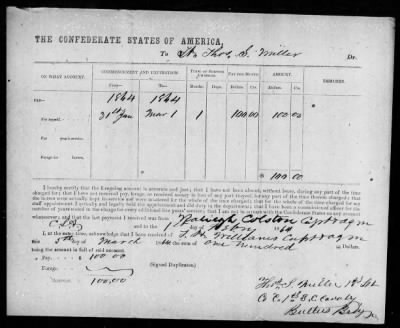 THE CONFEDERATE STATES OF AMERICA,
To Lt Thos. S. Miller Dr.
ON WHAT ACCOUNT. COMMENCEMENT AND EXPIRATION. TERM OF SERVICE CHARGED. PAY PER MONTH. AMOUNT. REMARKS.
From— To— Months. Days. Dollars Cts. Dollars Cts.
PAY— 1864 1864
For myself. 31st Jan Mar 1 1 100 00 100 00
For years service.
$ 100 00
I hereby certify that the foregoing account is accurate and just; that I have not been absent, without leave, during any part of the time
charged for; that I have not received pay, forage, or received money in lieu of any part thereof, for any part of the time therein charged; that the
horses were actually kept in service and were mustered for the whole of the time charged; that for the whole of the time charged for my
staff appointment, I actually and legally held the appointment and did duty in the department; that I have been a commissioned officer for the
number of years stated in the charge for every additional five years' service; that I am not in arrears with the Confederate States on any account
whatsoever; and that the last payment I received was from Raleigh Colston Capt & aqm
and to the 1 day of 1864
I, at the same time, acknowledge that I have received of Williams Capt & aqm
this 5th day of March 1864 the sum of one hundred Dollars,
being the amount in full of said account.
Pay, - - $ 100 00 (Signed Duplicates)
Forage,
Amount, 100,00
Thos. S. Miller 1st Lt
Co E 1st S.C. Cavalry
Butlers Brig